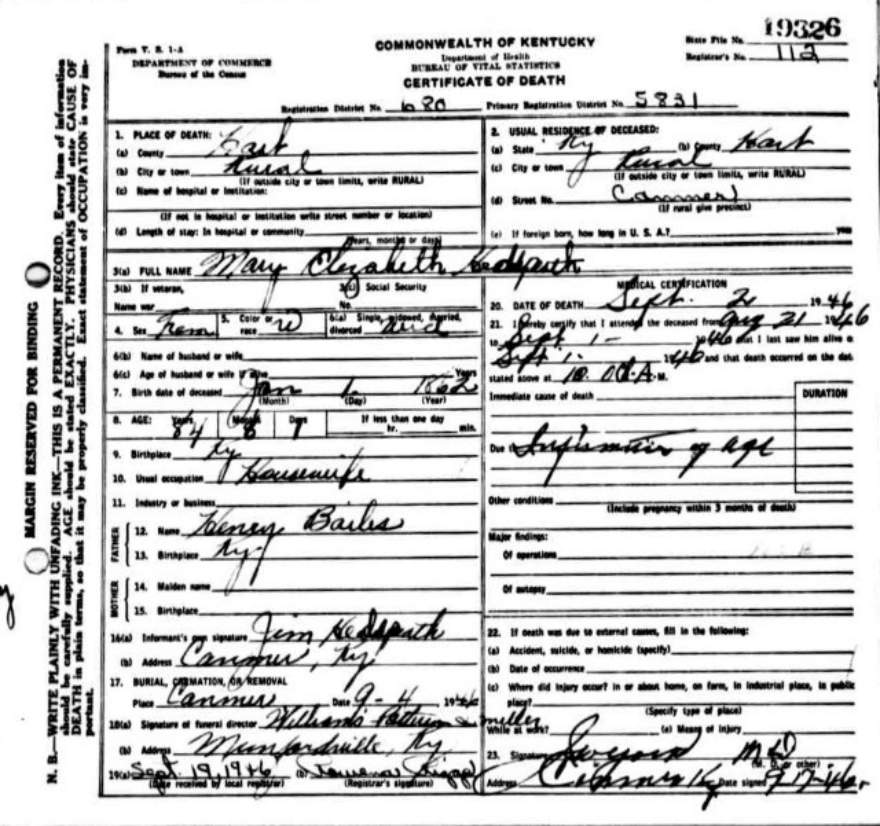 19326
Form V. S. 1-A
COMMONWEALTH OF KENTUCKY
State File No.
DEPARTMENT OF COMMERCE
Bureau of the Census
Department of Health
BUREAU OF VITAL STATISTICS
Registrar's No. 112
CERTIFICATE OF DEATH
Registration District No. 680 Primary Registration District No. 5831
MARGIN RESERVED FOR BINDING
N. B.—WRITE PLAINLY WITH UNFADING INK—THIS IS A PERMANENT RECORD. Every item of information
should be carefully supplied. AGE should be stated EXACTLY. PHYSICIANS should state CAUSE OF
DEATH in plain terms, so that it may be properly classified. Exact statement of OCCUPATION is very im-
portant.
1. PLACE OF DEATH:
(a) County Hart
(b) City or town Rural
(If outside city or town limits, write RURAL)
(c) Name of hospital or institution:
(If not in hospital or institution write street number or location)
(d) Length of stay: In hospital or community
(Years, months or days)
2. USUAL RESIDENCE OF DECEASED:
(a) State Ky (b) County Hart
(c) City or town Rural
(If outside city or town limits, write RURAL)
(d) Street No. Canmer
(If rural give precinct)
(e) If foreign born, how long in U. S. A.? years
3(a) FULL NAME Mary Elizabeth Hedspath
3(b) If veteran,
Name war
3(c) Social Security
No.
4. Sex Fem 5. Color or race W 6(a) Single, widowed, married, divorced Wid
6(b) Name of husband or wife
6(c) Age of husband or wife if alive Years
7. Birth date of deceased Jan 1 1862
(Month) (Day) (Year)
8. AGE: Years 84 Months 8 Days 1 If less than one day
hr. min.
9. Birthplace Ky
10. Usual occupation Housewife
11. Industry or business
FATHER
12. Name Henry Bailes
13. Birthplace Ky
MOTHER
14. Maiden name
15. Birthplace
16(a) Informant's own signature Jim Hedspath
(b) Address Canmer, Ky.
17. BURIAL, CREMATION, OR REMOVAL
Place Canmer Date 9-4 1946
18(a) Signature of funeral director Williams & Miller
(b) Address Munfordville, Ky
19(a) Sept 19, 1946 (b)
(Date received by local registrar) (Registrar's signature)
MEDICAL CERTIFICATION
20. DATE OF DEATH Sept. 2 1946
21. I hereby certify that I attended the deceased from Aug 21 1946
to Sept 1- 1946 that I last saw him alive o
Sept 1- 1946 and that death occurred on the dat
stated above at 10 A. M.
Immediate cause of death DURATION
Due to of age
Other conditions
(Include pregnancy within 3 months of death)
Major findings:
Of operations
Of autopsy
22. If death was due to external causes, fill in the following:
(a) Accident, suicide, or homicide (specify)
(b) Date of occurrence
(c) Where did injury occur? In or about home, on farm, in industrial place, in public
place?
(Specify type of place)
While at work? (e) Means of injury
23. Signature MD
(M. D. or other)
Address Canmer Ky Date signed 9-17-46